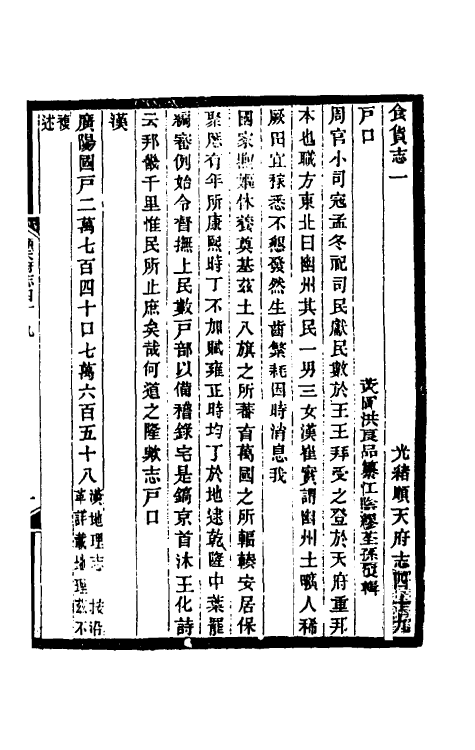 食貨志一
光緒順天府志四十九
戸口
黃岡洪良品纂江陰繆荃孫覆輯
周官小司寇孟冬祀司民獻民數於王王拜受之登於天府重邦
本也職方東北曰幽州其民一男三女漢崔寔謂幽州土曠人稀
厥田宜稼悉不懇發然生齒繁耗因時消息我
國家煦嫗休養奠基茲土八旗之所蕃育萬國之所輻輳安居保
聚歷有年所康熙時丁不加賦雍正時均丁於地逮乾隆中葉罷
編審例始令督撫上民數戸部以備稽錄宅是鎬京首沐王化詩
云邦畿千里惟民所止庶矣哉何道之隆歟志戸口
漢
廣陽國戸二萬七百四十口七萬六百五十八漢地理志 按沿
革詳載地理茲不
複
述